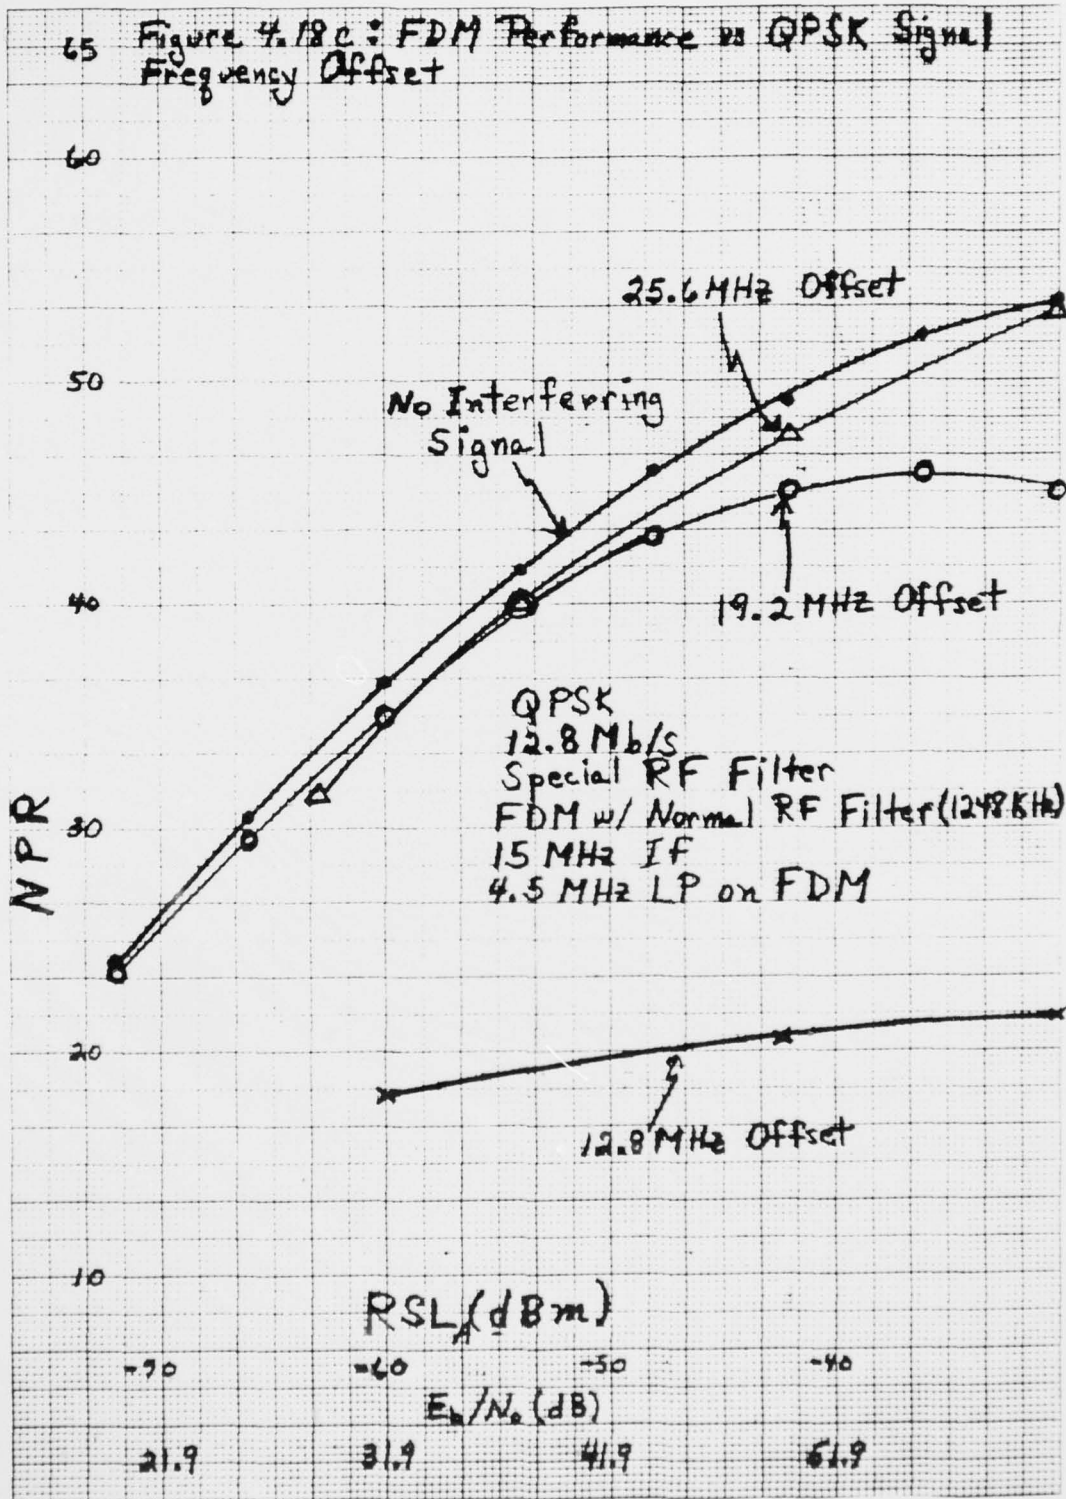 65 Figure 4.18c: FDM Performance vs QPSK Signal
Frequency Offset
60
25.6 MHz Offset
50
No Interferring
Signal
40
19.2 MHz Offset
QPSK
12.8 Mb/s
Special RF Filter
FDM w/ Normal RF Filter (1248 KHz)
30
15 MHz IF
4.5 MHz LP on FDM
NPR
20
12.8 MHz Offset
10
RSL_A (dBm)
-70 -60 -50 -40
E_b/N_o (dB)
21.9 31.9 41.9 51.9